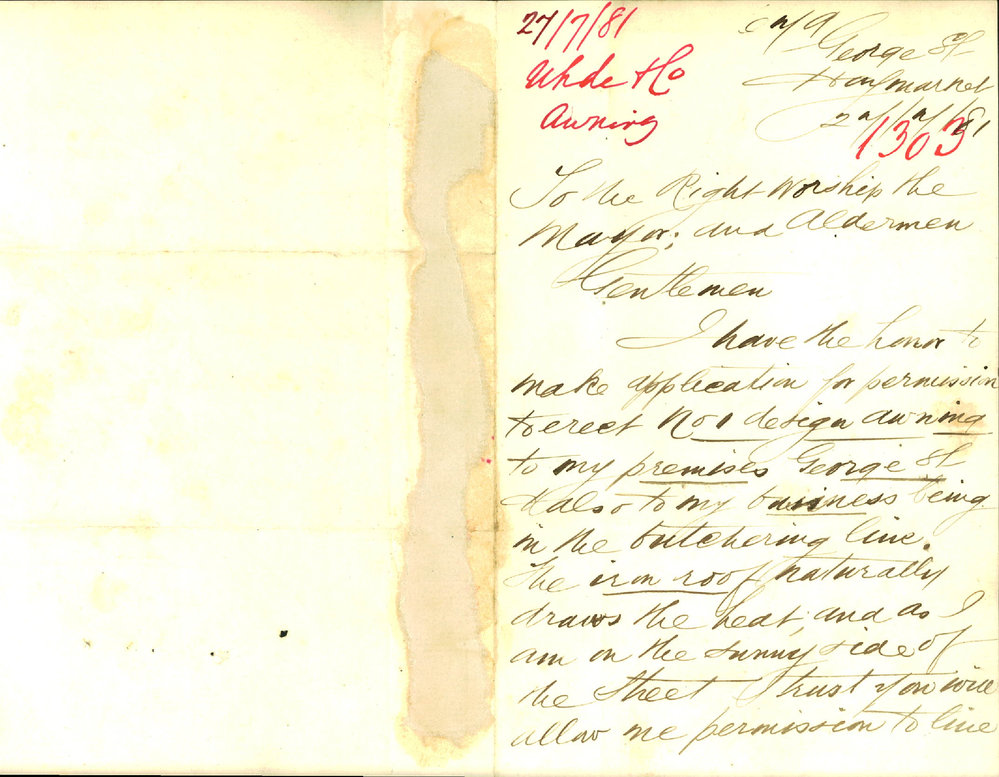 27/7/81
Uhde & Co
Awning
George St
Haymarket
27/7/81
1303
To the Right Worship the
Mayor; and Aldermen
Gentlemen
I have the honor to
make application for permission
to erect No 1 design awning
to my premises George St
& also to my business being
in the butchering line.
The iron roof naturally
draws the heat, and as I
am on the sunny side of
the street I trust you will
allow me permission to line